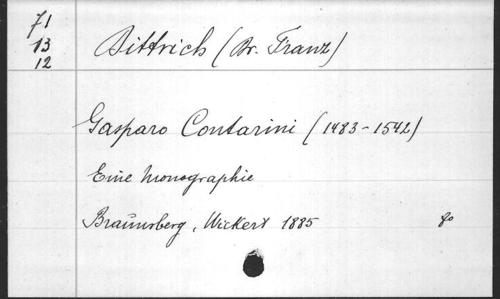 71
13
12
Dittrich (Dr. Franz)
Gasparo Contarini (1483-1542)
Eine Monographie
Braunsberg, Wickert 1885 8o